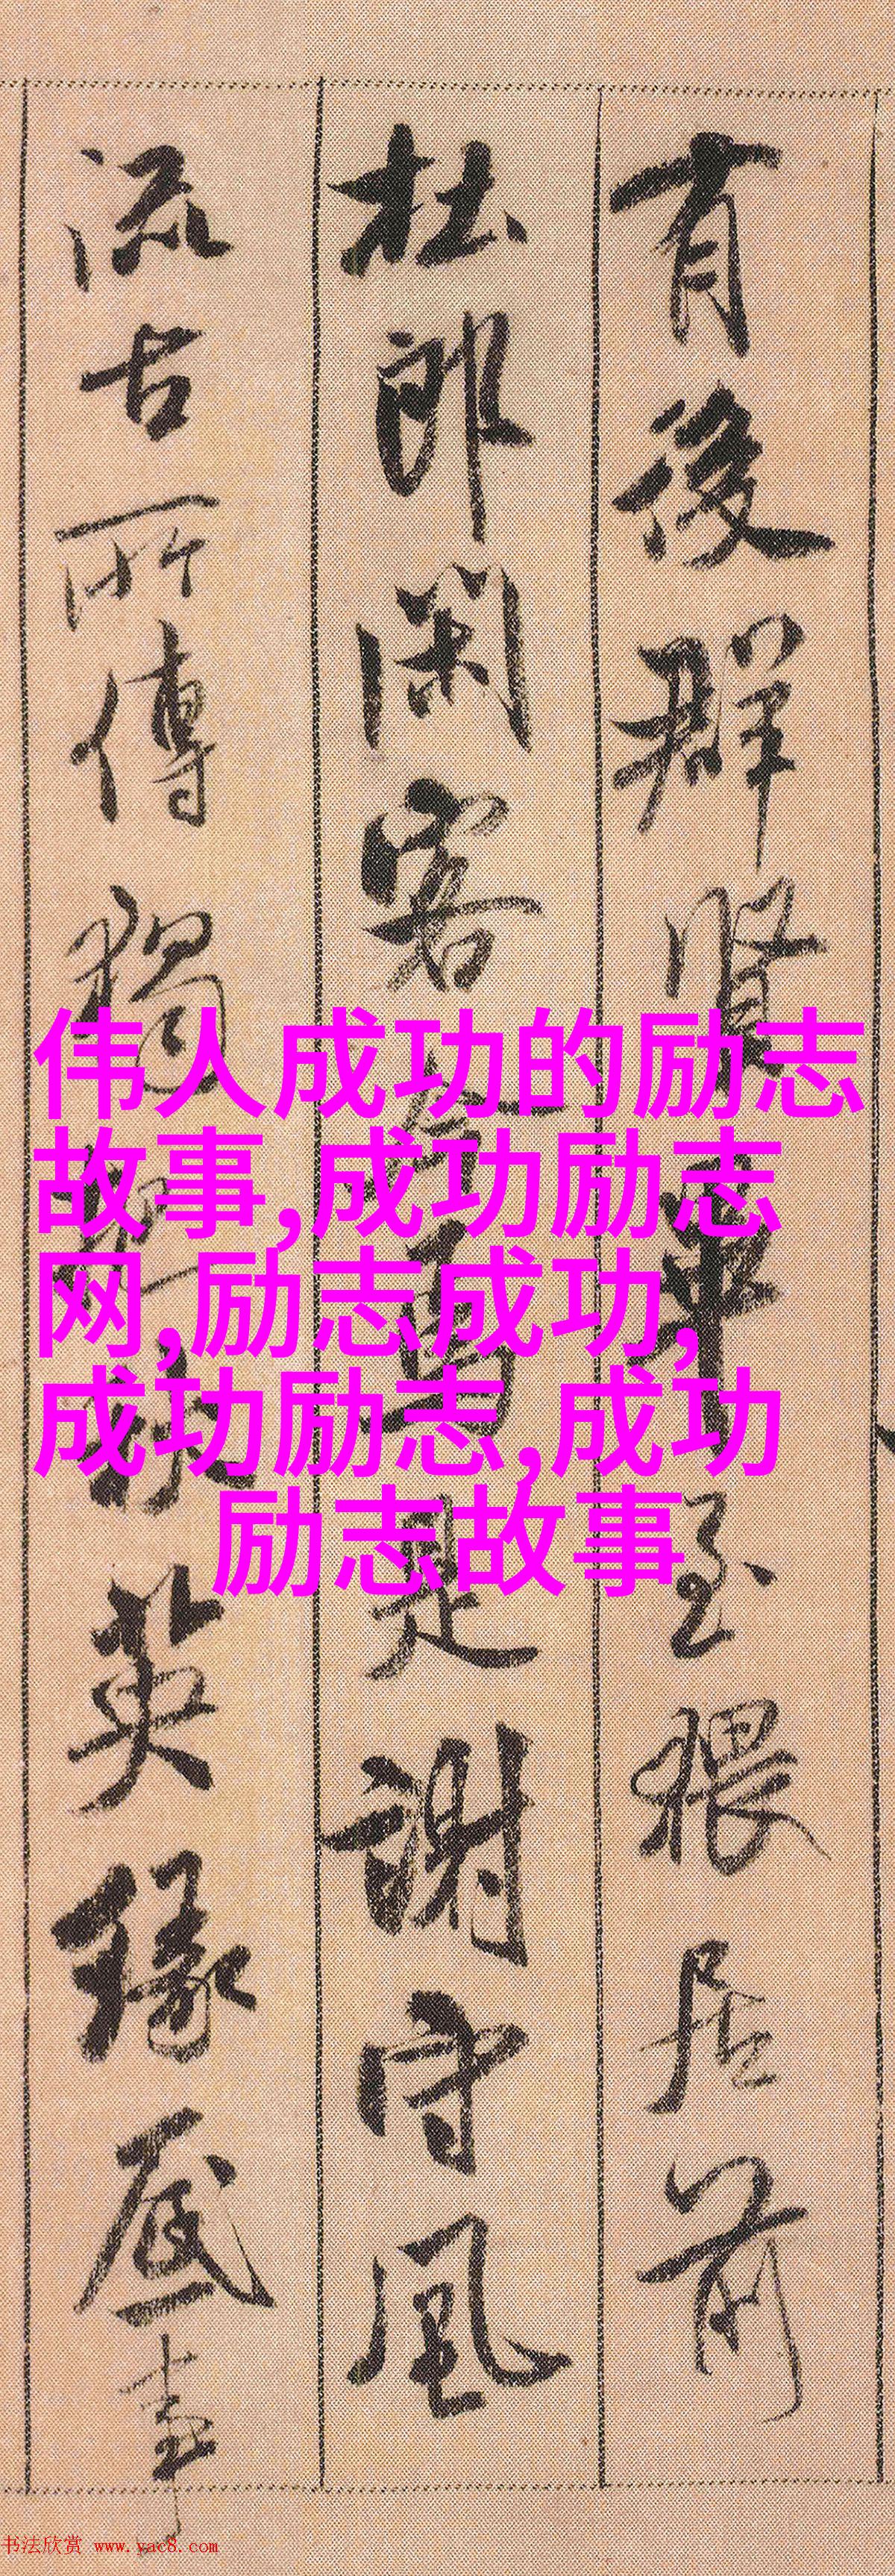 有後群賢畢至猥居前
杜郎閑客今焉是謝守風
流古所傳獨把秋英緣底事
伟人成功的励志
故事,成功励志
网,励志成功,
成功励志,成功
励志故事
书法欣赏 www.yac8.com